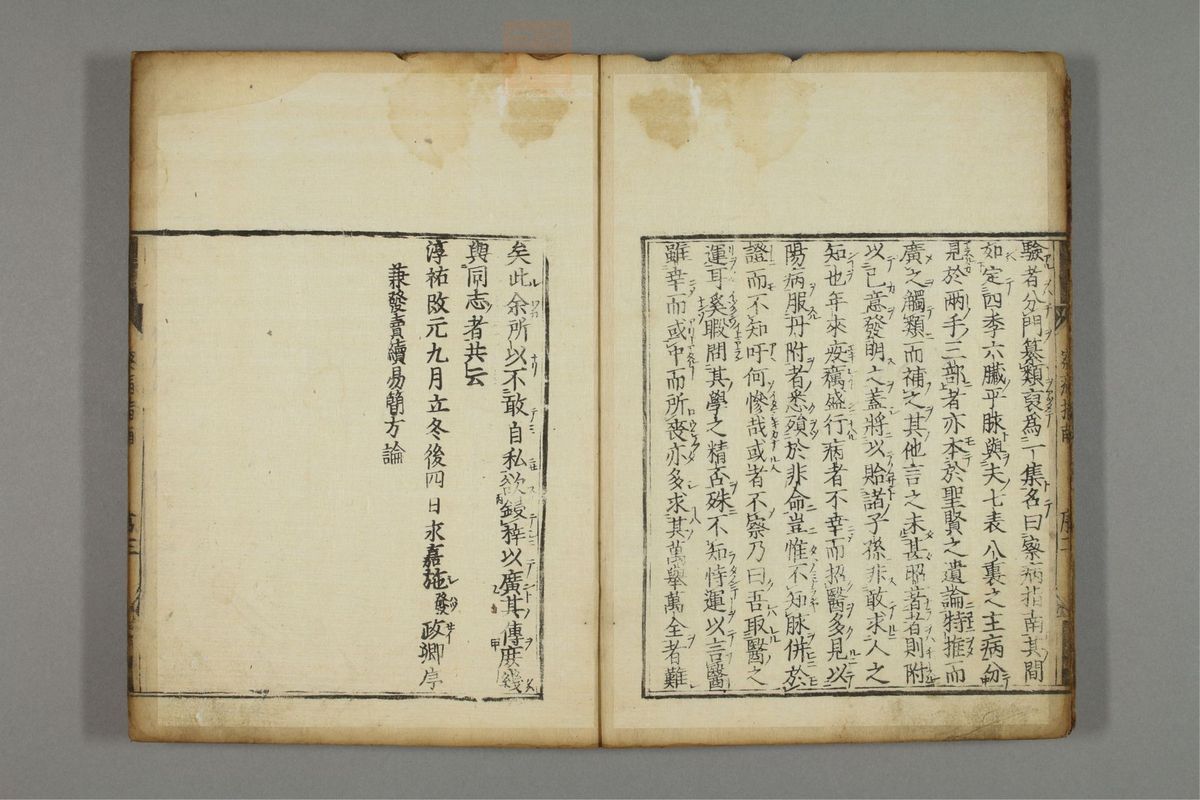 驗者分門纂類裒爲一集名曰察病指南其間
如定四季六臟平脉與夫七表八裏之主病分
見於兩手三部者亦本於聖賢之遺論特推而
廣之觸類而補之其他言之未甚昭著者則附
以己意發明之蓋將以貽諸子孫非敢求人之
知也年來疫癘盛行病者不幸而招醫多見以
陽病服丹附者悉殞於非命豈惟不知脉併於
證而不知吁何慘哉或者不察乃曰吾取醫之
運耳奚暇問其學之精否殊不知恃運以言醫
雖幸而或中而所喪亦多求其萬舉萬全者難
矣此余所以不敢自私欲鋟梓以廣其傳庶幾
與同志者共云
淳祐改元九月立冬後四日永嘉施發政卿序
兼發賣續易簡方論